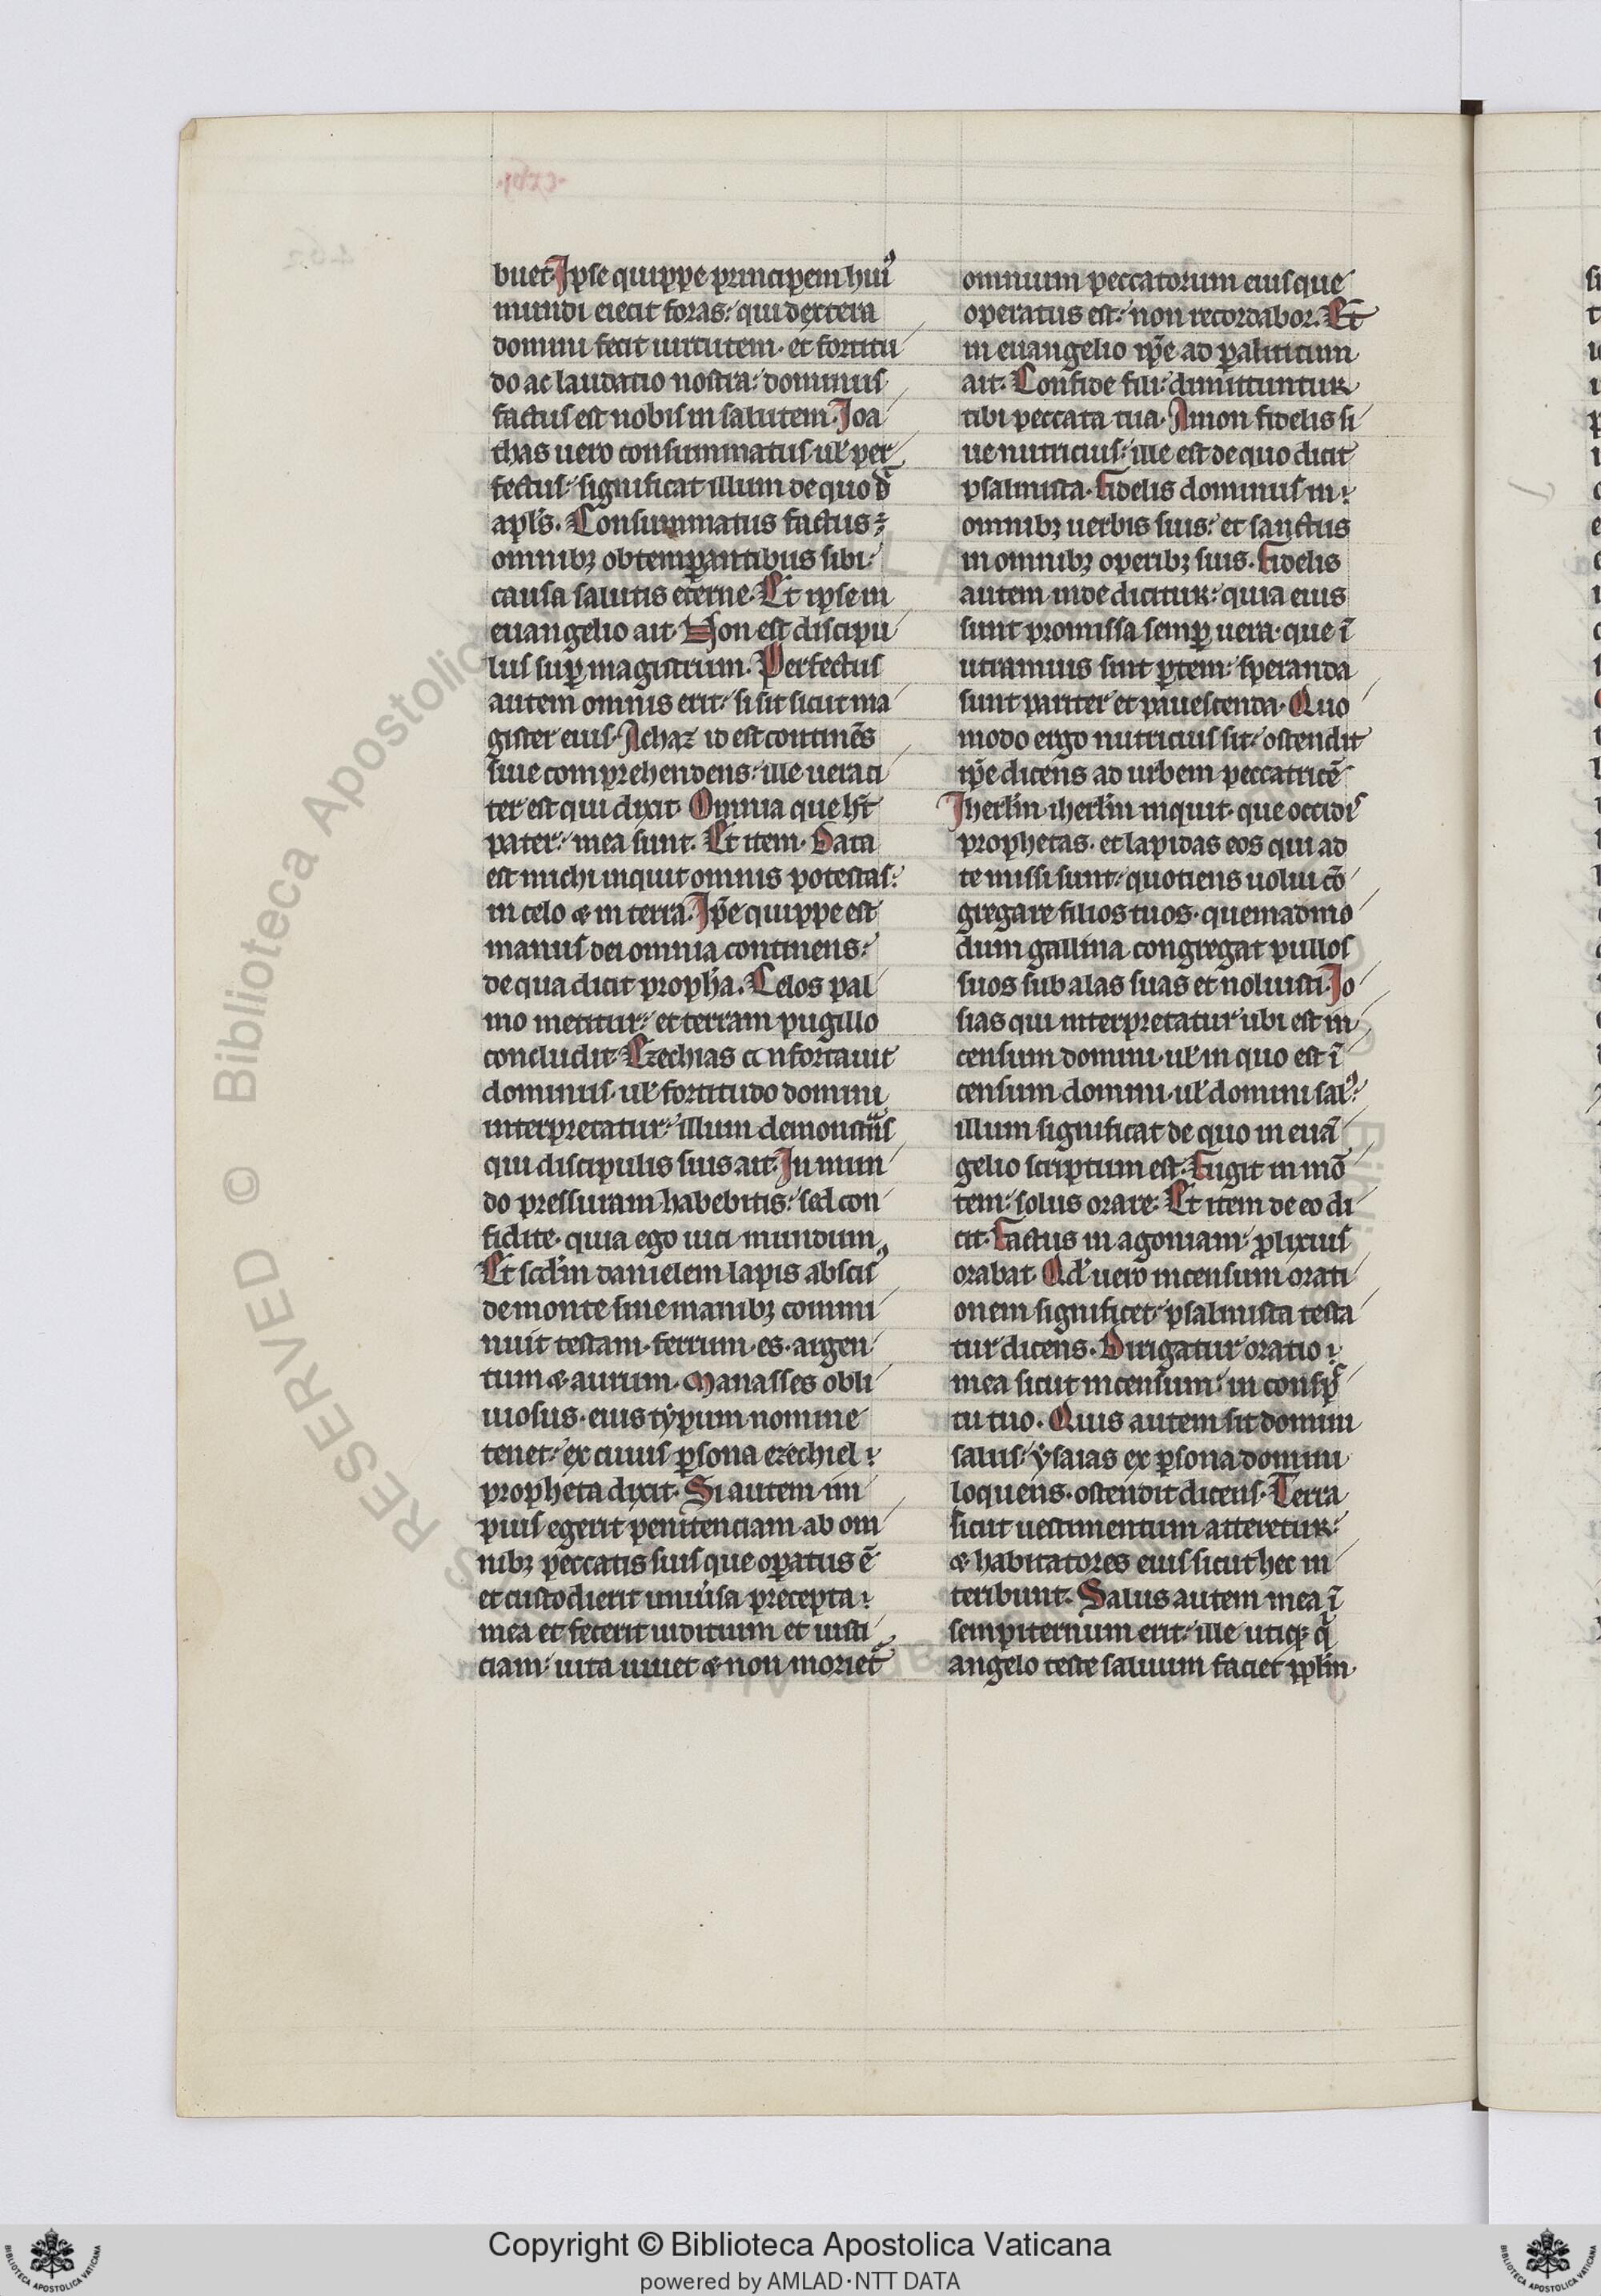 buet. Ipse quippe principem huiꝰ
mundi eiecit foras: qui dextera
domini fecit uirtutem. et fortitu
do ac laudatio nostra: dominus
factus est nobis in salutem. Joa
thas uero consummatus. uł per
fectus: significat illum de quo d̄
apl̄s. Consummatus factus:
omnibꝫ obtemꝑantibus sibi:
causa salutis eterne. Et ipse in
euangelio ait. Non est discipu
lus suꝑ magistrum. Perfectus
autem omnis erit: si sit sicut ma
gister eius. Achaz id est continēs
siue comprehendens: ille ueraci
ter est qui dixit. Omnia que hт̄
pater: mea sunt. Et item. Data
est michi inquit omnis potestas:
in celo & in terra. Ip̄e quippe est
manus dei omnia continens:
de qua dicit proph̄a. Celos pal
mo metitur: et terram pugillo
concludit. Ezechias confortauit
dominus. uł fortitudo domini
interpretatur: illum demonstrās
qui discipulis suis ait. In mun
do pressuram habebitis: sed con
fidite. quia ego uici mundum.
Et scd̄m danielem lapis abscisꝰ
de monte sine manibꝫ commi
nuit testam. ferrum. es. argen
tum & aurum. Manasses obli
uiosus. eius tẏpum nomine
tenet: ex cuius ꝑsona ezechiel:
propheta dixit. Si autem im
pius egerit penitenciam ab om
nibꝫ peccatis suis que oꝑatus ē
et custodierit uniu̾sa precepta:
mea et fecerit iudicium et iusti
ciam: uita uiuet & non morietᷣ
omnium peccatorum eius que
operatus est: non recordabor. Et
in euangelio ip̄e ad ꝑaliticum
ait. Confide fili: dimittuntur
tibi peccata tua. Amon fidelis si
ue nutricius: ille est de quo dicit
psalmista. Fidelis dominus in:
omnibꝫ uerbis suis: et sanctus
in omnibꝫ operibꝫ suis. Fidelis
autem inde dicitur: quia eius
sunt promissa semꝑ uera. que ī
utramuis sint ꝑtem: speranda
sunt pariter et pauescenda. Quo
modo ergo nutricius sit: ostendit
ip̄e dicens ad urbem peccatricē
Jherłm. iherłm inquit. que occidis
prophetas. et lapidas eos qui ad
te missi sunt: quotiens uolui cō
gregare filios tuos. quemadmo
dum gallina congregat pullos
suos sub alas suas et noluisti. Jo
sias qui interpretatur ubi est in
censum domini. uł in quo est ī
censum domini. uł domini salꝰ:
illum significat de quo in euā
gelio scriptum est. Fugit in mō
tem: solus orare: Et item de eo di
cit. Factus in agoniam: ꝓlixius
orabat. Qd̾ uero incensum orati
onem significet: psalmista testa
tur dicens. Dirigatur oratio:
mea sicut incensum: in consp̄c
tu tuo. Quis autem sit domini
salus: ẏsaias ex ꝑsona domini
loquens. ostendit dicens. Terra
sicut uestimentum atteretur:
& habitatores eius sicut hec in
teribunt. Salus autem mea ī
sempiternum erit: ille utiqꝫ q̄
angelo teste saluum faciet ppłm.
Copyright © Biblioteca Apostolica Vaticana
powered by AMLAD·NTT DATA